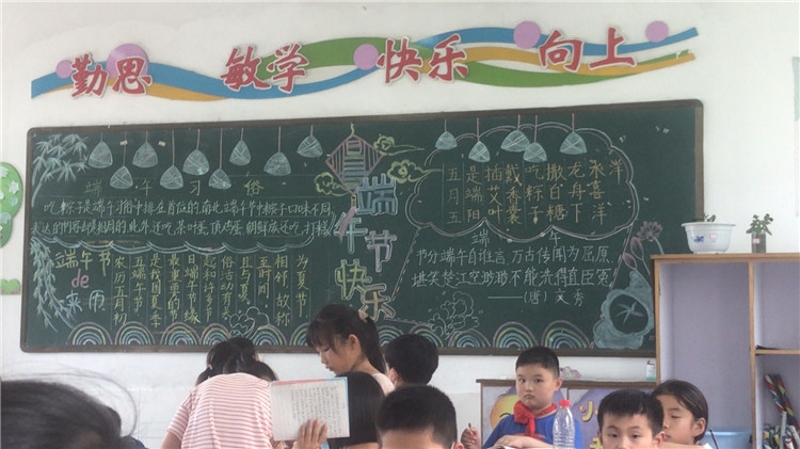 勤思 敏学 快乐 向上
端午习俗
吃粽子是端午习俗中排在首位的
南北端午节吃粽子口味不同
端午节
de
来历
农历五月初
五端午节
是我国夏季
最重要的节
日端午节缘
起和许多节
俗古动有关
且与夏
至时间
相邻,故称
为夏节
端午节快乐
五是插戴吃撒龙水洋
月端艾香粽白舟喜
五阳叶囊子糖下洋
端 午
节分端午自谁言,万古传闻为屈原.
堪笑楚江空渺渺,不能洗得直臣冤.
——(唐)文秀